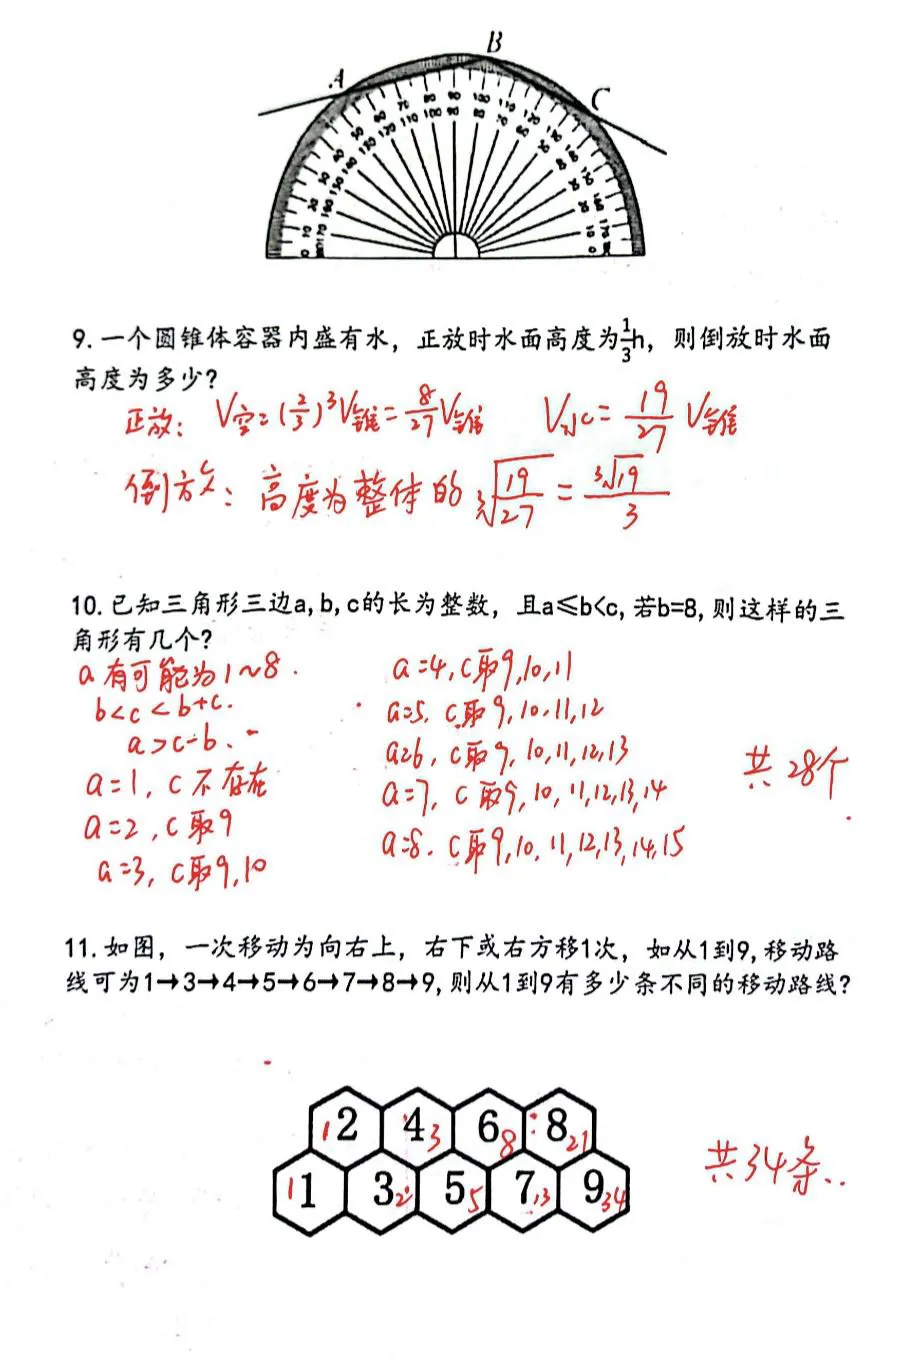 A B C
9. 一个圆锥体容器内盛有水，正放时水面高度为1/3h，则倒放时水面
高度为多少?
正放: V空=(2/3)³V锥=8/27V锥 V水=19/27 V锥
倒放: 高度为整体的 ³√(19/27) = ³√19/3
10. 已知三角形三边a,b,c的长为整数，且a≤b<c,若b=8,则这样的三
角形有几个?
a有可能为1~8.
b<c<b+c.
a>c-b.
a=1, c不存在
a=2, c取9
a=3, c取9,10
a=4, c取9,10,11
a=5. c取9,10,11,12
a=6, c取9, 10,11,12,13
a=7, c取9,10,11,12,13,14
a=8. c取9,10,11,12,13,14,15
共28个
11. 如图，一次移动为向右上，右下或右方移1次，如从1到9,移动路
线可为1→3→4→5→6→7→8→9,则从1到9有多少条不同的移动路线?
2 4 6 8
1 3 8 21
1 3 5 7 9
1 2 5 13 34
共34条..